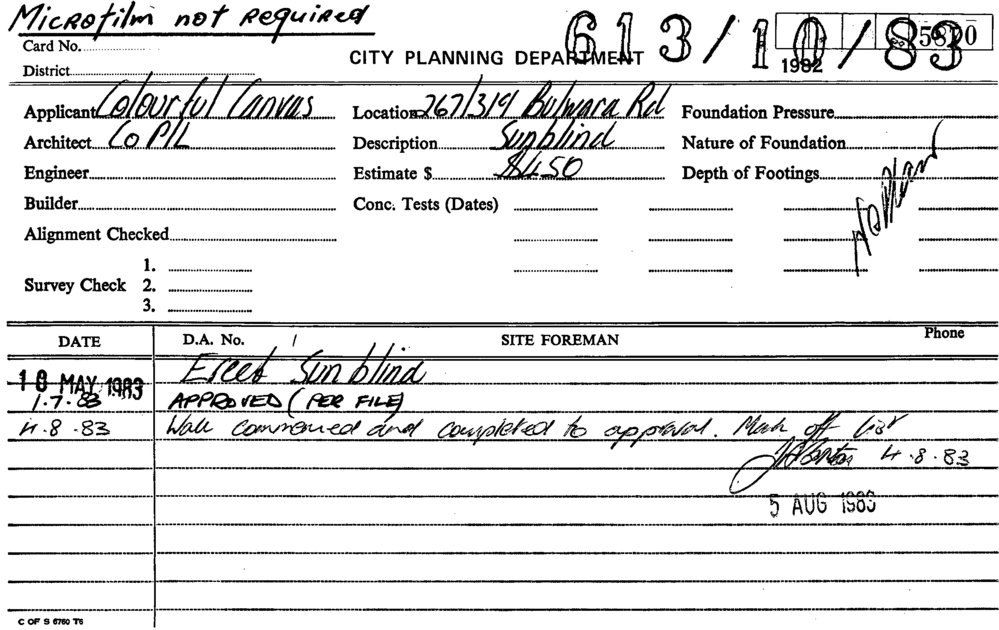 Microfilm not required
613/10/83
Card No.
5820
CITY PLANNING DEPARTMENT
1982
District
Applicant Colourful Canvas Location 267/319 Bulwara Rd Foundation Pressure
Architect Co P/L Description Sunblind Nature of Foundation
Engineer Estimate $ $450 Depth of Footings
No Plans
Builder Conc. Tests (Dates)
Alignment Checked
1.
Survey Check 2.
3.
DATE D.A. No. SITE FOREMAN Phone
18 MAY 1983 Erect Sunblind
1.7.83 APPROVED (PER FILE)
4.8.83 Work commenced and completed to approval. Mark off list
4.8.83
5 AUG 1983
C OF S 6760 T6